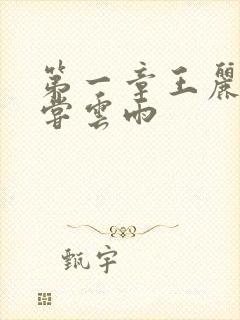 第一章王麗
嘗雲雨
甄宇